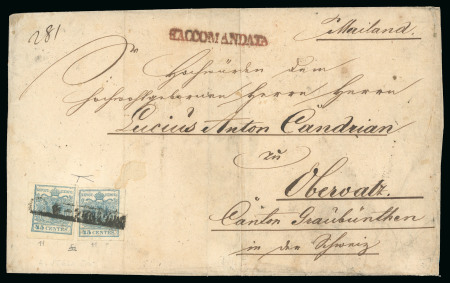 281
RACCOMANDATA
Mailand.
Hochwürden dem
Hochwohlgebornen Herrn Herrn
Lucius Anton Candrian
zu
Obervatz.
Canton Graubünthen
in der Schweiz
45 CENTES
45 CENTES